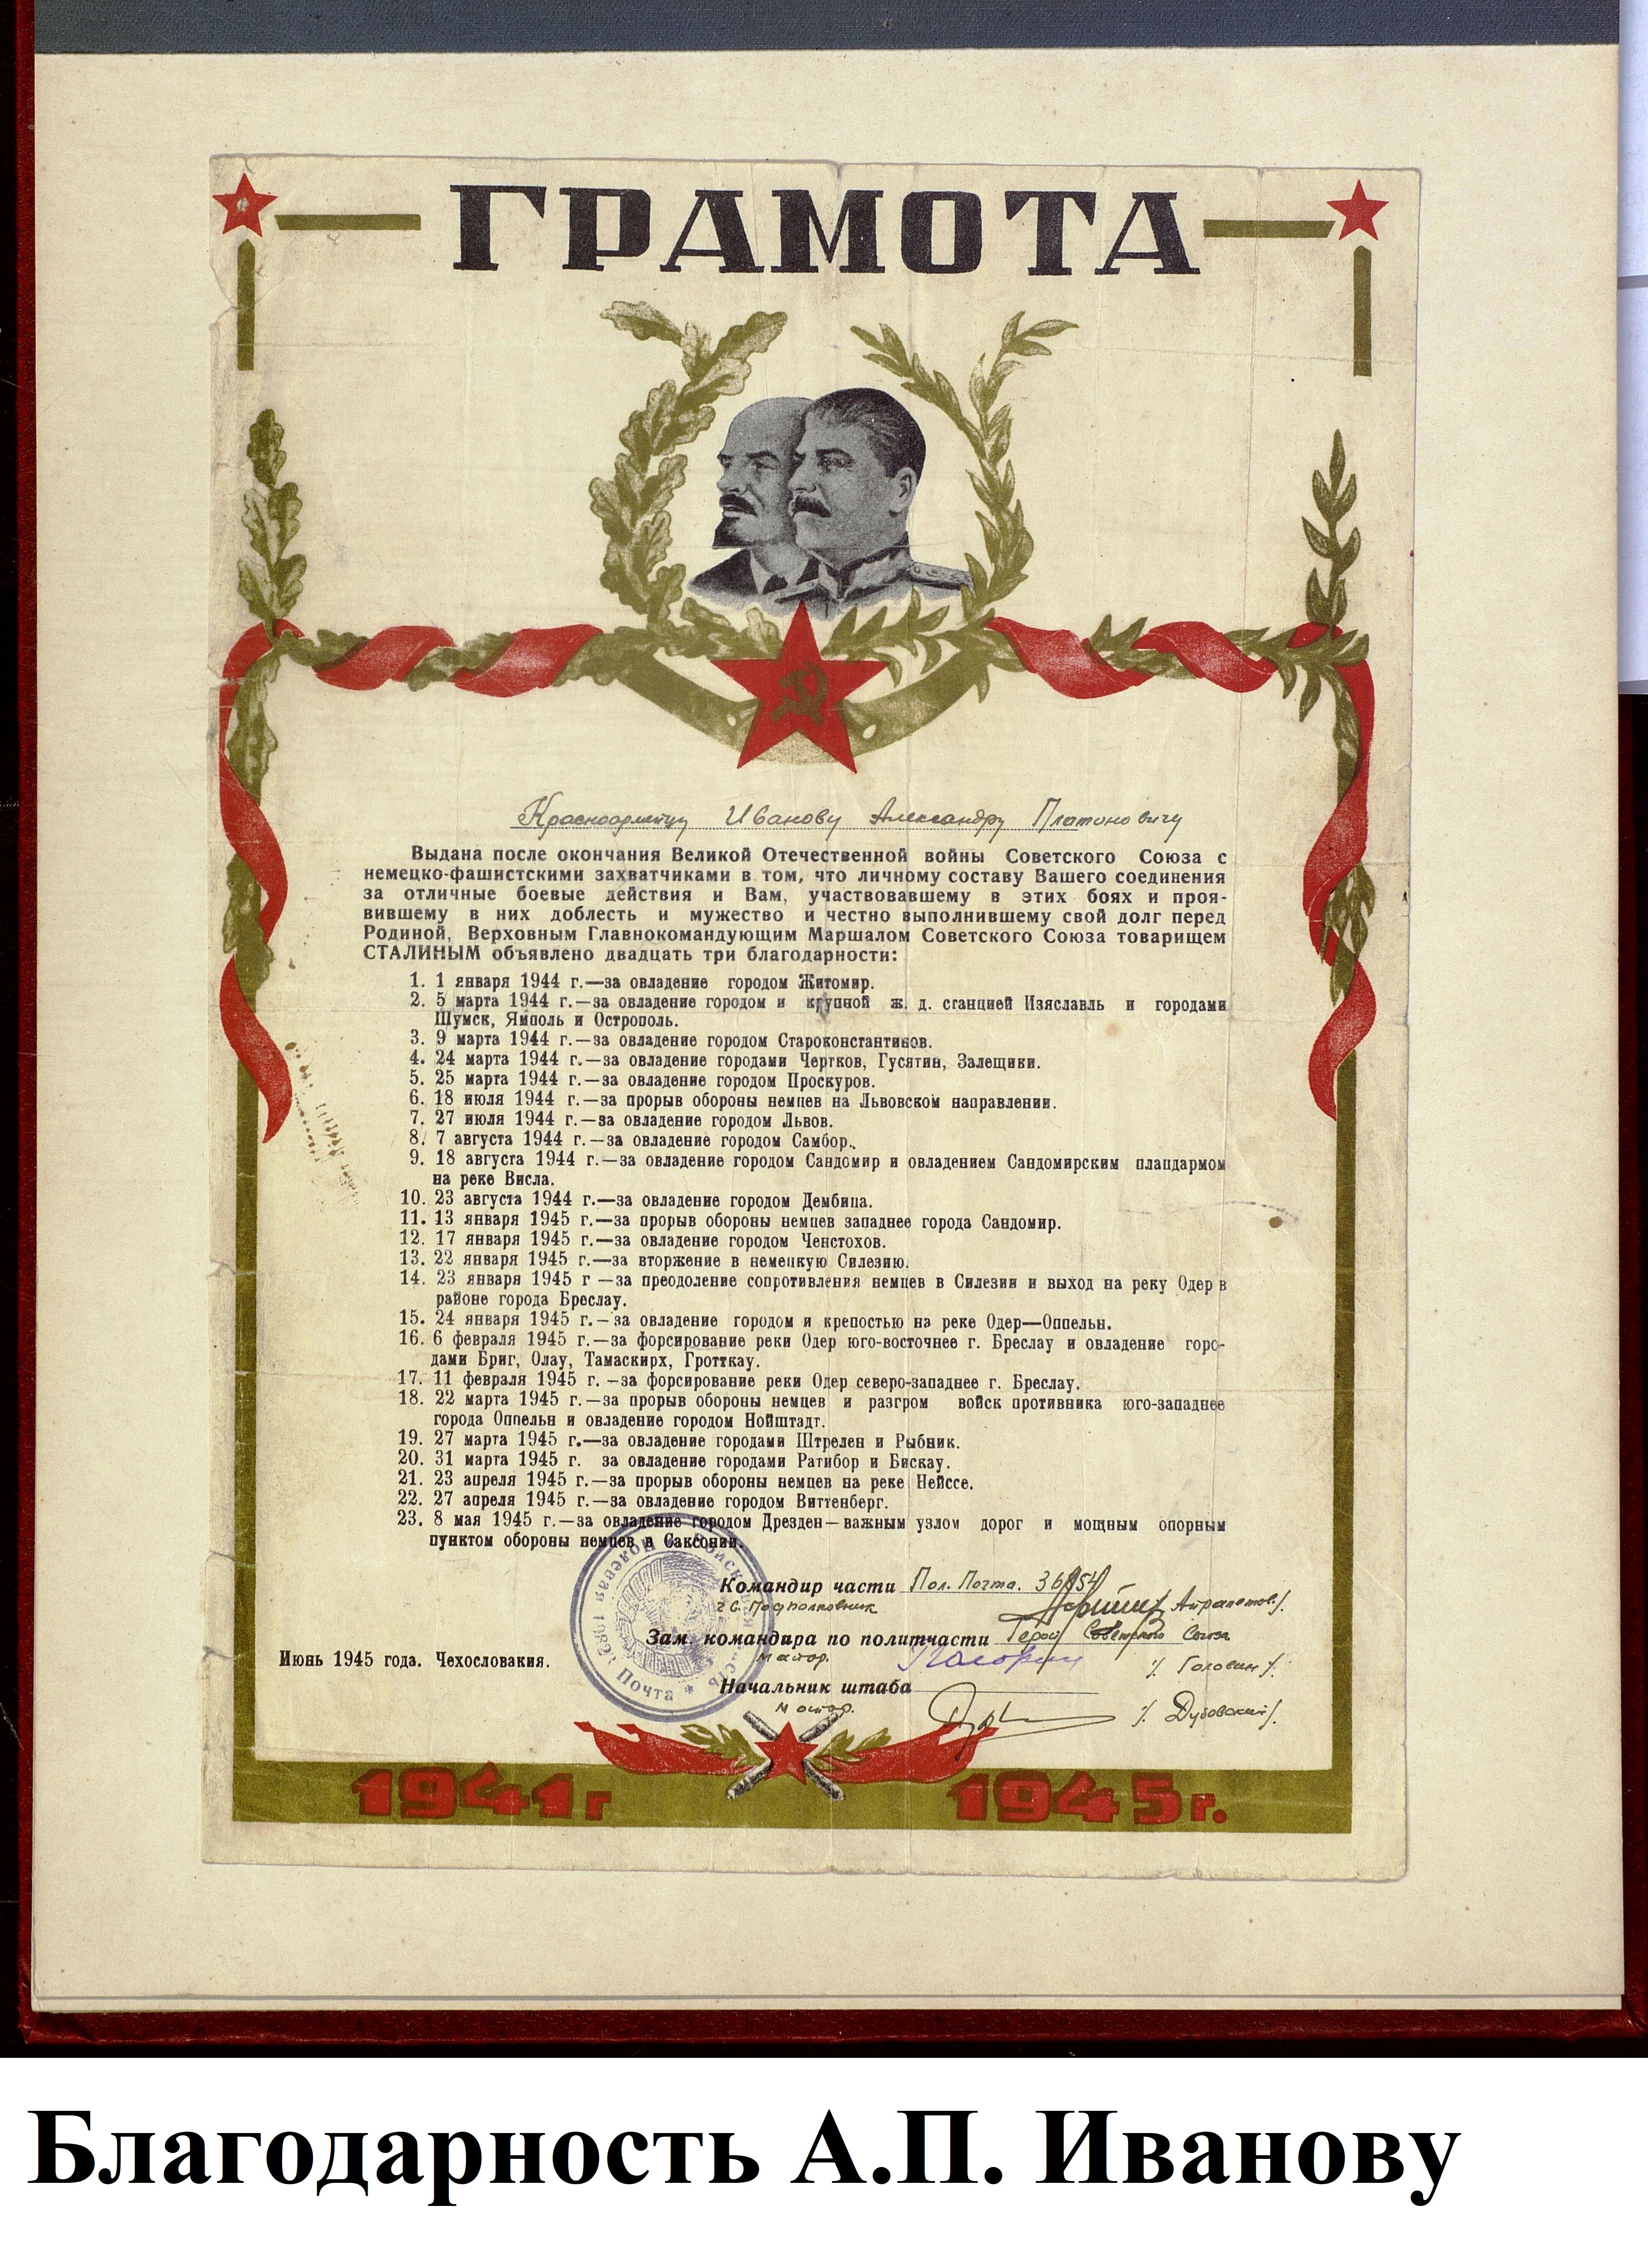 ГРАМОТА
Красноармейцу Иванову Александру Платоновичу
Выдана после окончания Великой Отечественной войны Советского Союза с
немецко-фашистскими захватчиками в том, что личному составу Вашего соединения
за отличные боевые действия и Вам, участвовавшему в этих боях и проя-
вившему в них доблесть и мужество и честно выполнившему свой долг перед
Родиной, Верховным Главнокомандующим Маршалом Советского Союза товарищем
СТАЛИНЫМ объявлено двадцать три благодарности:
1. 1 января 1944 г.—за овладение городом Житомир.
2. 5 марта 1944 г.—за овладение городом и крупной ж. д. станцией Изяславль и городами
Шумск, Ямполь и Острополь.
3. 9 марта 1944 г.—за овладение городом Староконстантинов.
4. 24 марта 1944 г.—за овладение городами Чертков, Гусятин, Залещики.
5. 25 марта 1944 г.—за овладение городом Проскуров.
6. 18 июля 1944 г.—за прорыв обороны немцев на Львовском направлении.
7. 27 июля 1944 г.—за овладение городом Львов.
8. 7 августа 1944 г.—за овладение городом Самбор.
9. 18 августа 1944 г.—за овладение городом Сандомир и овладением Сандомирским плацдармом
на реке Висла.
10. 23 августа 1944 г.—за овладение городом Дембица.
11. 13 января 1945 г.—за прорыв обороны немцев западнее города Сандомир.
12. 17 января 1945 г.—за овладение городом Ченстохов.
13. 22 января 1945 г.—за вторжение в немецкую Силезию.
14. 23 января 1945 г —за преодоление сопротивления немцев в Силезии и выход на реку Одер в
районе города Бреслау.
15. 24 января 1945 г.—за овладение городом и крепостью на реке Одер—Оппельн.
16. 6 февраля 1945 г.—за форсирование реки Одер юго-восточнее г. Бреслау и овладение горо-
дами Бриг, Олау, Тамаскирх, Гротткау.
17. 11 февраля 1945 г. —за форсирование реки Одер северо-западнее г. Бреслау.
18. 22 марта 1945 г.—за прорыв обороны немцев и разгром войск противника юго-западнее
города Оппельн и овладение городом Нойштадт.
19. 27 марта 1945 г.—за овладение городами Штрелен и Рыбник.
20. 31 марта 1945 г. за овладение городами Ратибор и Бискау.
21. 23 апреля 1945 г.—за прорыв обороны немцев на реке Нейссе.
22. 27 апреля 1945 г.—за овладение городом Виттенберг.
23. 8 мая 1945 г.—за овладение городом Дрезден—важным узлом дорог и мощным опорным
пунктом обороны немцев в Саксонии.
Командир части Пол. Почта. 36854
Гв. Подполковник /Айрапетов/.
Герой Советского Союза
Зам. командира по политчасти
майор. /Головин/.
Июнь 1945 года. Чехословакия.
Начальник штаба
майор. /Дубовский/.
Полевая Почта
1941г 1945г.
Благодарность А.П. Иванову